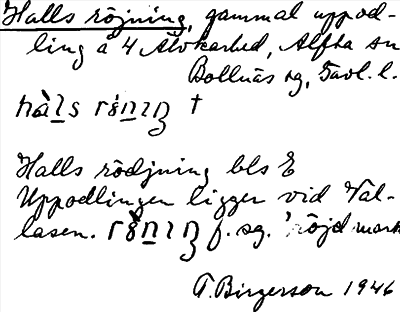 Halls röjning, gammal uppod-
ling å 4 Älvkarhed, Alfta sn
Bollnäs sg, Gävl. l.
†
Halls rödjning bls E
Uppodlingen ligger vid Val-
lasen. f. sg. 'röjd mark
T. Birgerson 1946